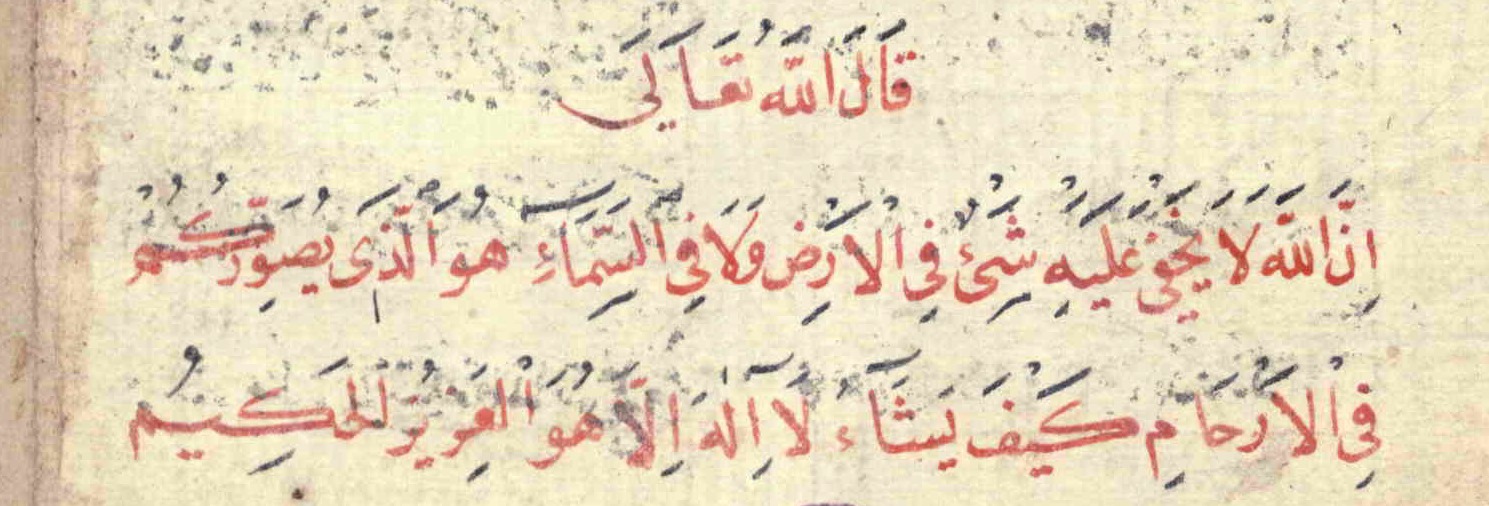 قَالَ اللّٰهُ تَعَالَى
اِنَّ اللّٰهَ لَا يَخْفَى عَلَيْهِ شَيْئٌ فِي الْاَرْضِ وَلَا فِي السَّمَاءِ هُوَ الَّذِى يُصَوِّرُكُمْ
فِى الْاَرْحَامِ كَيْفَ يَشَآءُ لَآ اِلٰهَ اِلَّا هُوَ الْعَزِيزُ الْحَكِيمُ